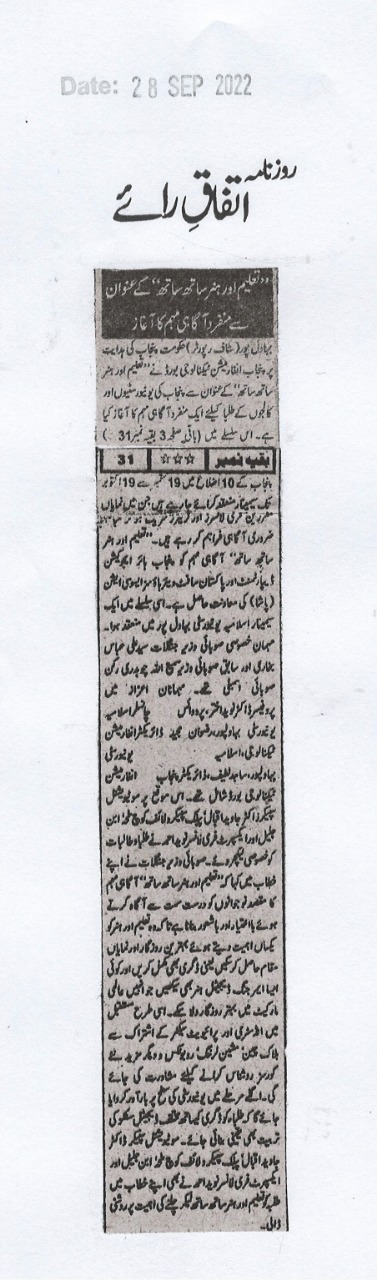 Date: 28 SEP 2022
روزنامہ
اتفاقِ رائے
”تعلیم اور ہنر ساتھ ساتھ“ کے عنوان
سے منفرد آگاہی مہم کا آغاز
بہاول پور (سٹاف رپورٹر) حکومت پنجاب کی ہدایت
پر پنجاب انفارمیشن ٹیکنالوجی بورڈ نے ”تعلیم اور ہنر
ساتھ ساتھ“ کے عنوان سے پنجاب کی یونیورسٹیوں اور
کالجوں کے طلبا کیلئے ایک منفرد آگاہی مہم کا آغاز کیا
ہے۔ اس سلسلے میں (باقی صفحہ 3 بقیہ نمبر 31)
بقیہ نمبر ☆☆☆ 31
پنجاب کے 10 اضلاع میں 19 ستمبر سے 19 اکتوبر
تک سیمینار منعقد کرائے جا رہے ہیں جن میں نمایاں
مقررین فری لانسرز اور
ضروری آگاہی فراہم کر رہے ہیں۔ ”تعلیم اور ہنر
ساتھ ساتھ“ آگاہی مہم کو پنجاب ہائر ایجوکیشن
ڈیپارٹمنٹ اور پاکستان سافٹ ویئر ہاؤسز ایسوسی ایشن
(پاشا) کی معاونت حاصل ہے۔ اسی سلسلے میں ایک
سیمینار اسلامیہ یونیورسٹی بہاول پور میں منعقد ہوا۔
مہمان خصوصی صوبائی وزیر جنگلات سید علی عباس
بخاری اور سابق صوبائی وزیر سمیع اللہ چوہدری رکن
صوبائی اسمبلی تھے۔ مہمانان اعزاز میں
پروفیسر ڈاکٹر نوید اختر، پرووائس چانسلر اسلامیہ
یونیورسٹی بہاولپور، رضوان مجید ڈائریکٹر انفارمیشن
ٹیکنالوجی، اسلامیہ یونیورسٹی
بہاولپور، ساجد لطیف، ڈائریکٹر پنجاب انفارمیشن
ٹیکنالوجی بورڈ شامل تھے۔ اس موقع پر موٹیویشنل
سپیکر ڈاکٹر جاوید اقبال، پبلک سپیکر و لائف کوچ طہٰ ابن
جلیل اور ایکسپرٹ فری لانسر نوید احمد نے طلبا و طالبات
کو خصوصی لیکچر دیئے۔ صوبائی وزیر جنگلات نے اپنے
خطاب میں کہا کہ ”تعلیم اور ہنر ساتھ ساتھ“ آگاہی مہم
کا مقصد نوجوانوں کو درست سمت سے آگاہ کرتے
ہوئے بااختیار اور باشعور بنانا ہے تاکہ وہ تعلیم اور ہنر کو
یکساں اہمیت دیتے ہوئے بہترین روزگار اور نمایاں
مقام حاصل کر سکیں یعنی ڈگری بھی مکمل کریں اور کوئی
ایسا ایمرجنگ ڈیجیٹل ہنر بھی سیکھیں جو انہیں عالمی
مارکیٹ میں بہتر روزگار دلا سکے۔ اسی طرح مستقبل
میں انڈسٹری اور پرائیویٹ سیکٹر کے اشتراک سے
بلاک چین، مشین لرننگ، روبوٹکس و دیگر مزید نئے
کورسز روشناس کرانے کیلئے مشاورت کی جائے
گی۔ اگلے مرحلے میں یونیورسٹی کی سطح پر باور کروایا
جائے گا کہ طلبا کو ڈگری کیساتھ مختلف ڈیجیٹل سکلز کی
تربیت بھی یقینی بنائی جائے۔ موٹیویشنل سپیکر ڈاکٹر
جاوید اقبال، پبلک سپیکر و لائف کوچ طہٰ ابن جلیل اور
ایکسپرٹ فری لانسر نوید احمد نے بھی اپنے خطاب میں
طلبہ کو تعلیم اور ہنر ساتھ ساتھ لیکر چلنے کی اہمیت پر روشنی
ڈالی۔